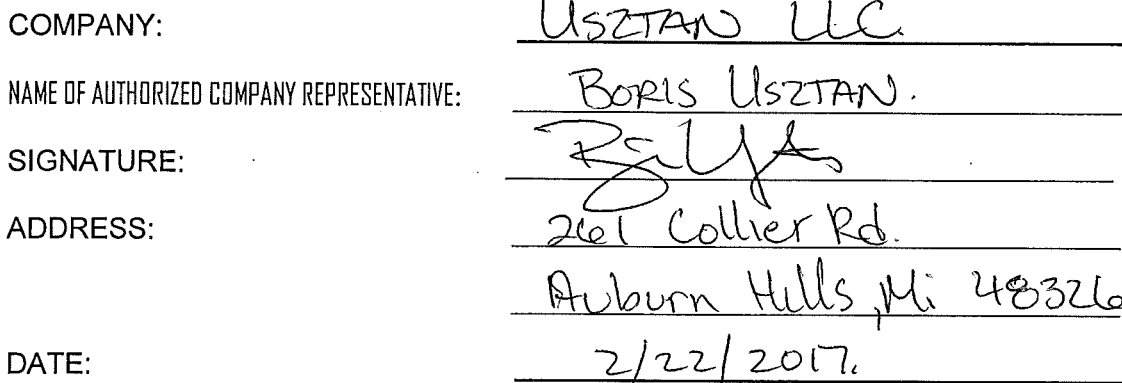 COMPANY: USZTAN LLC.
NAME OF AUTHORIZED COMPANY REPRESENTATIVE: BORIS USZTAN.
SIGNATURE:
ADDRESS: 261 Collier Rd.
Auburn Hills, Mi 48326
DATE: 2/22/2017.